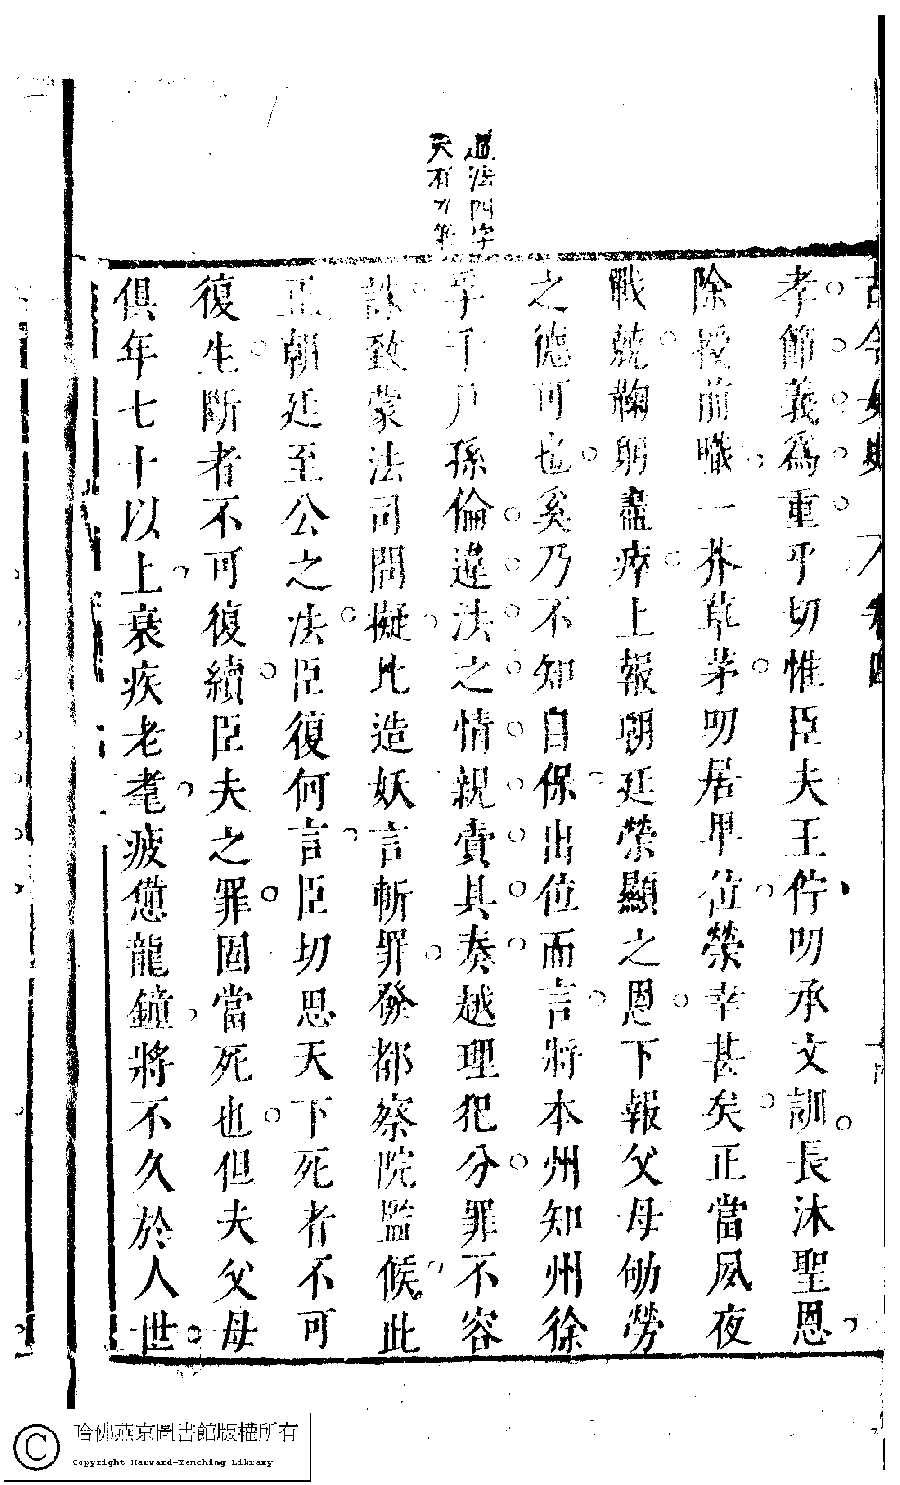 古今女史 卷四
違法四字
大有力
孝節義爲重乎切惟臣夫王佇叨承文訓長沐聖恩
除授前職一芥草茅叨居卑位榮幸甚矣正當夙夜
戰兢鞠躬盡瘁上報朝廷榮顯之恩下報父母劬勞
之德可也奚乃不知自保出位而言將本州知州徐
孚千戶孫倫違法之情親賫具奏越理犯分罪不容
誅致蒙法司問擬比造妖言斬罪發都察院監候此
正朝廷至公之法臣復何言臣切思天下死者不可
復生斷者不可復續臣夫之罪固當死也但夫父母
俱年七十以上衰疾老耄疲憊龍鐘將不久於人世
哈佛燕京圖書館版權所有
Copyright Harvard-Yenching Library